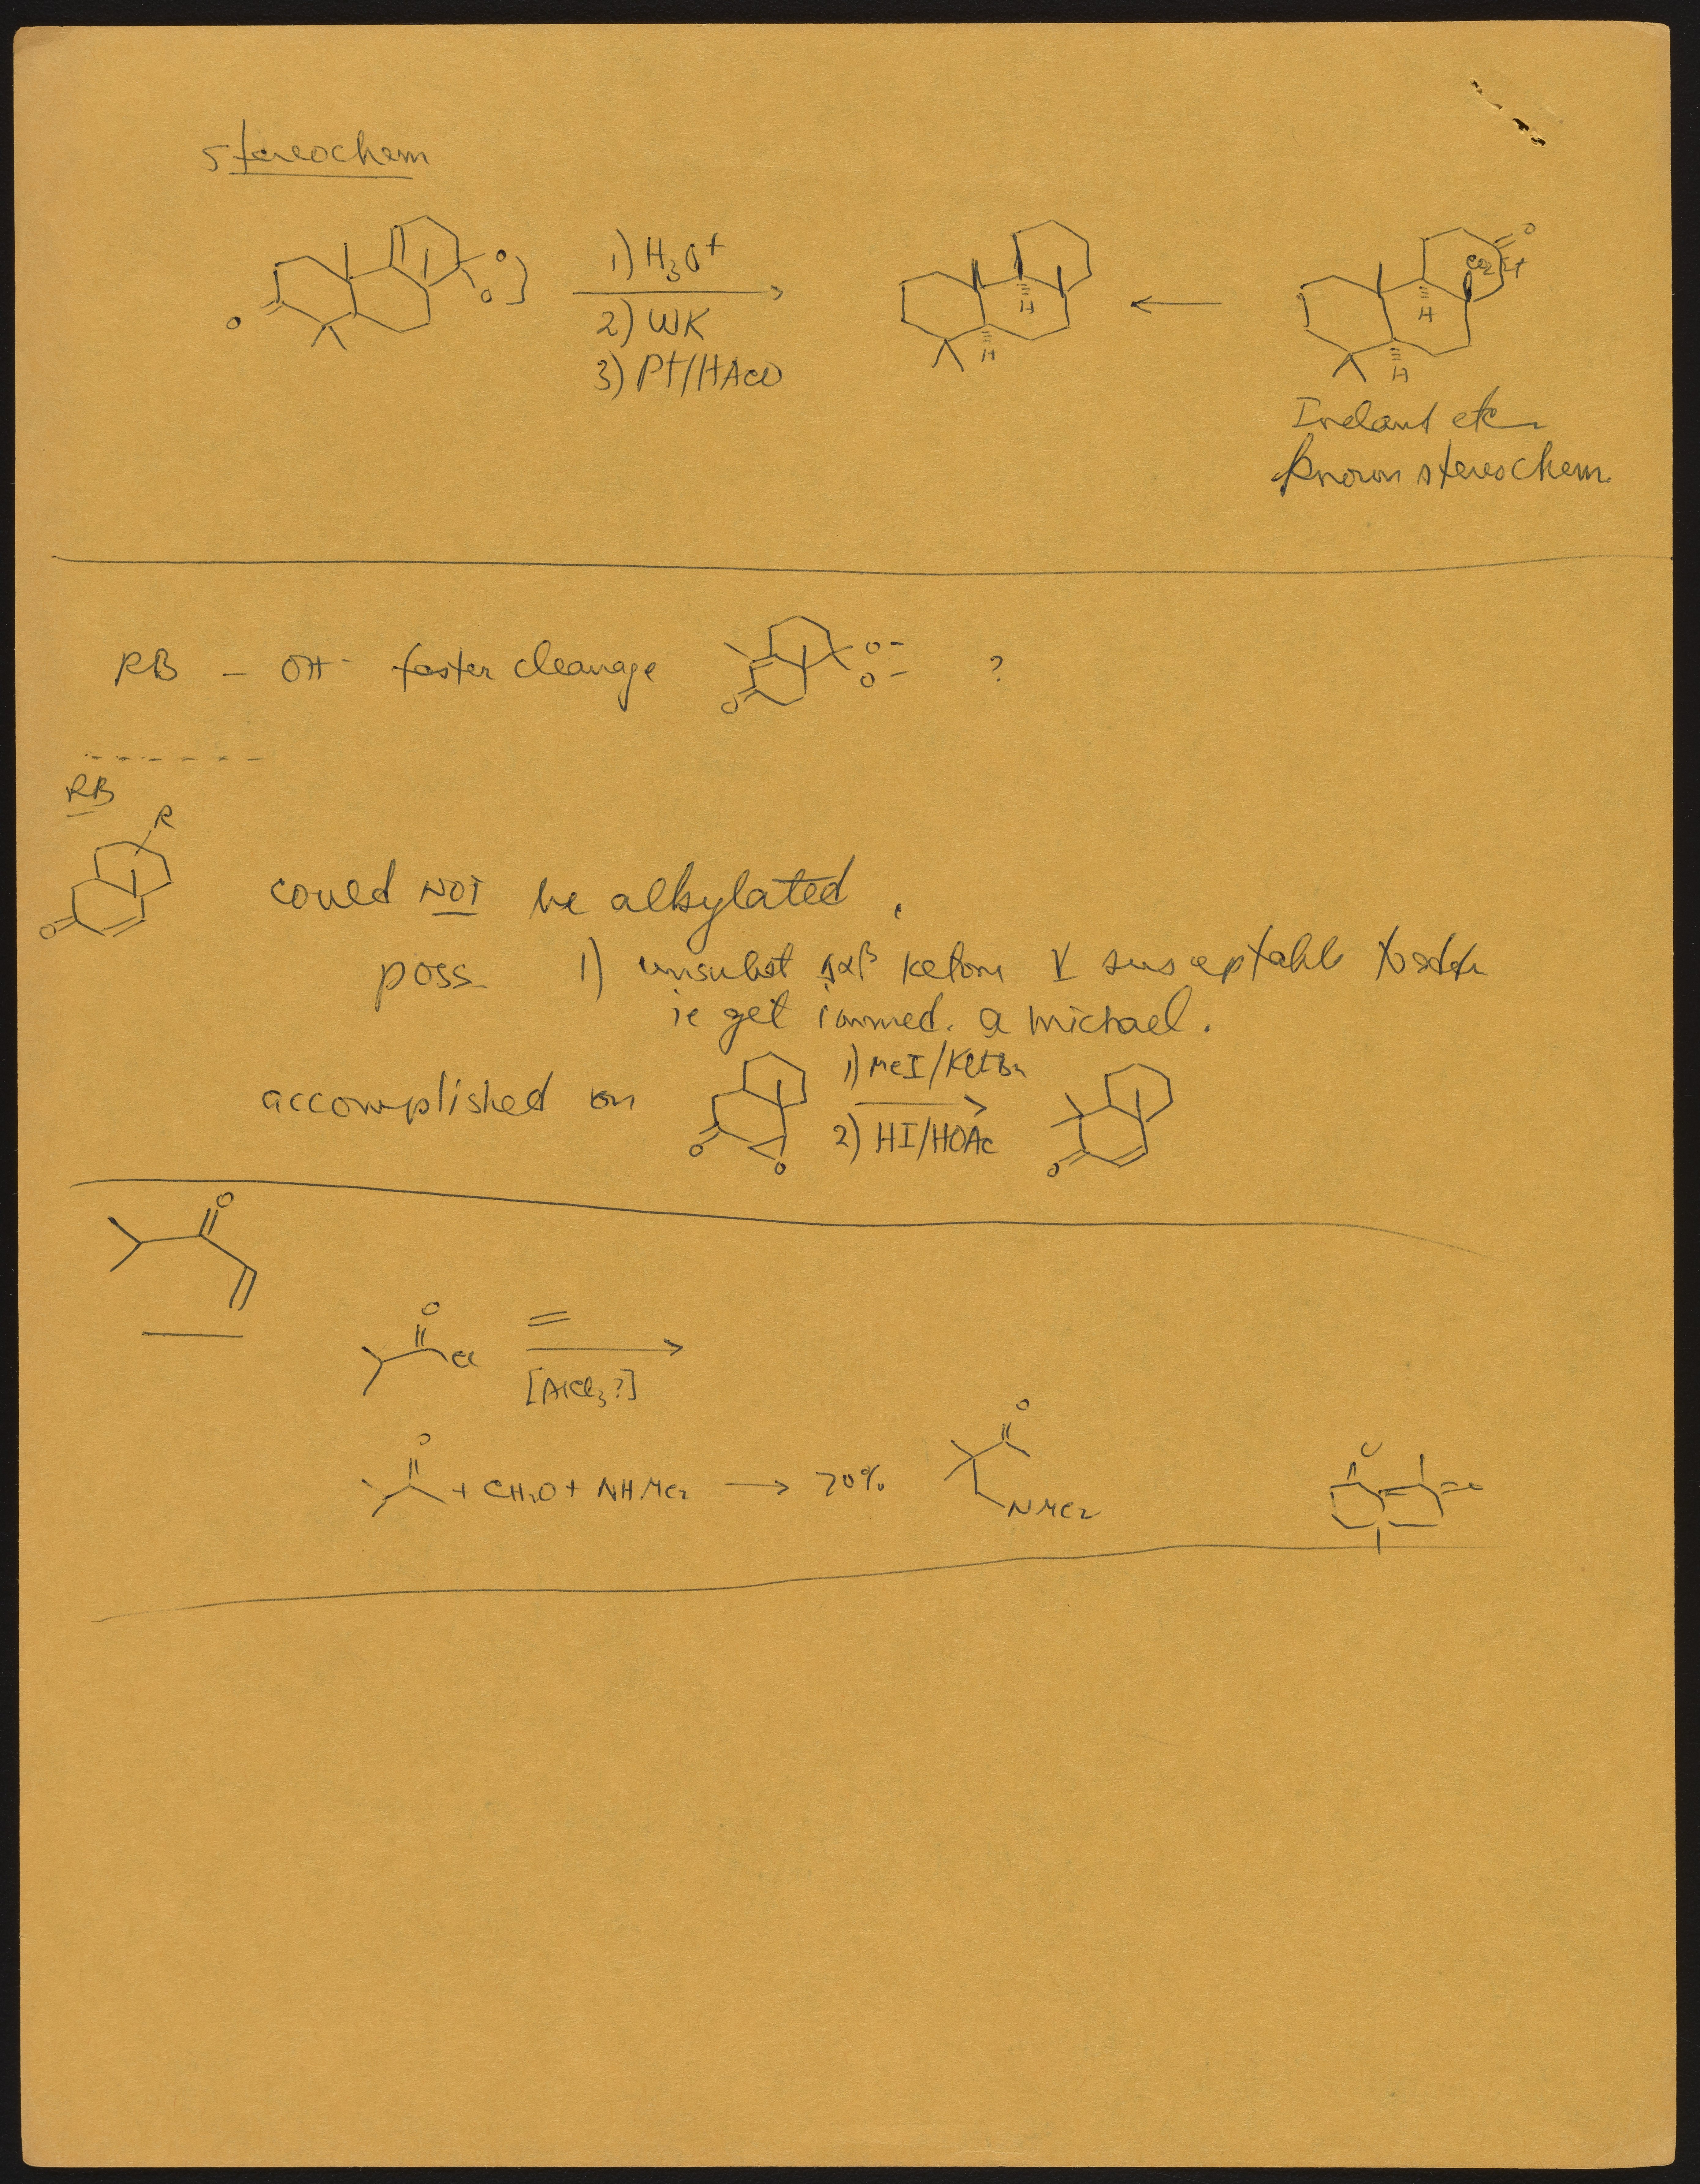 stereochem
1) H3O+
2) WK
3) Pt/HAcO
O
O
O
H
H
O
CO2Et
H
H
Ireland etc
known stereochem.
RB – OH- faster cleavage
O-
O-
O
?
RB
R
O
could NOT be alkylated.
poss 1) unsubst Δαβ ketone V susceptable to
ie get immed. a michael.
accomplished on
O
O
1) MeI/KOtBu
2) HI/HOAc
O
O
O
Cl
=
[AlCl3?]
O
+ CH2O + NHMe2 → 70%
O
NMe2
O
O